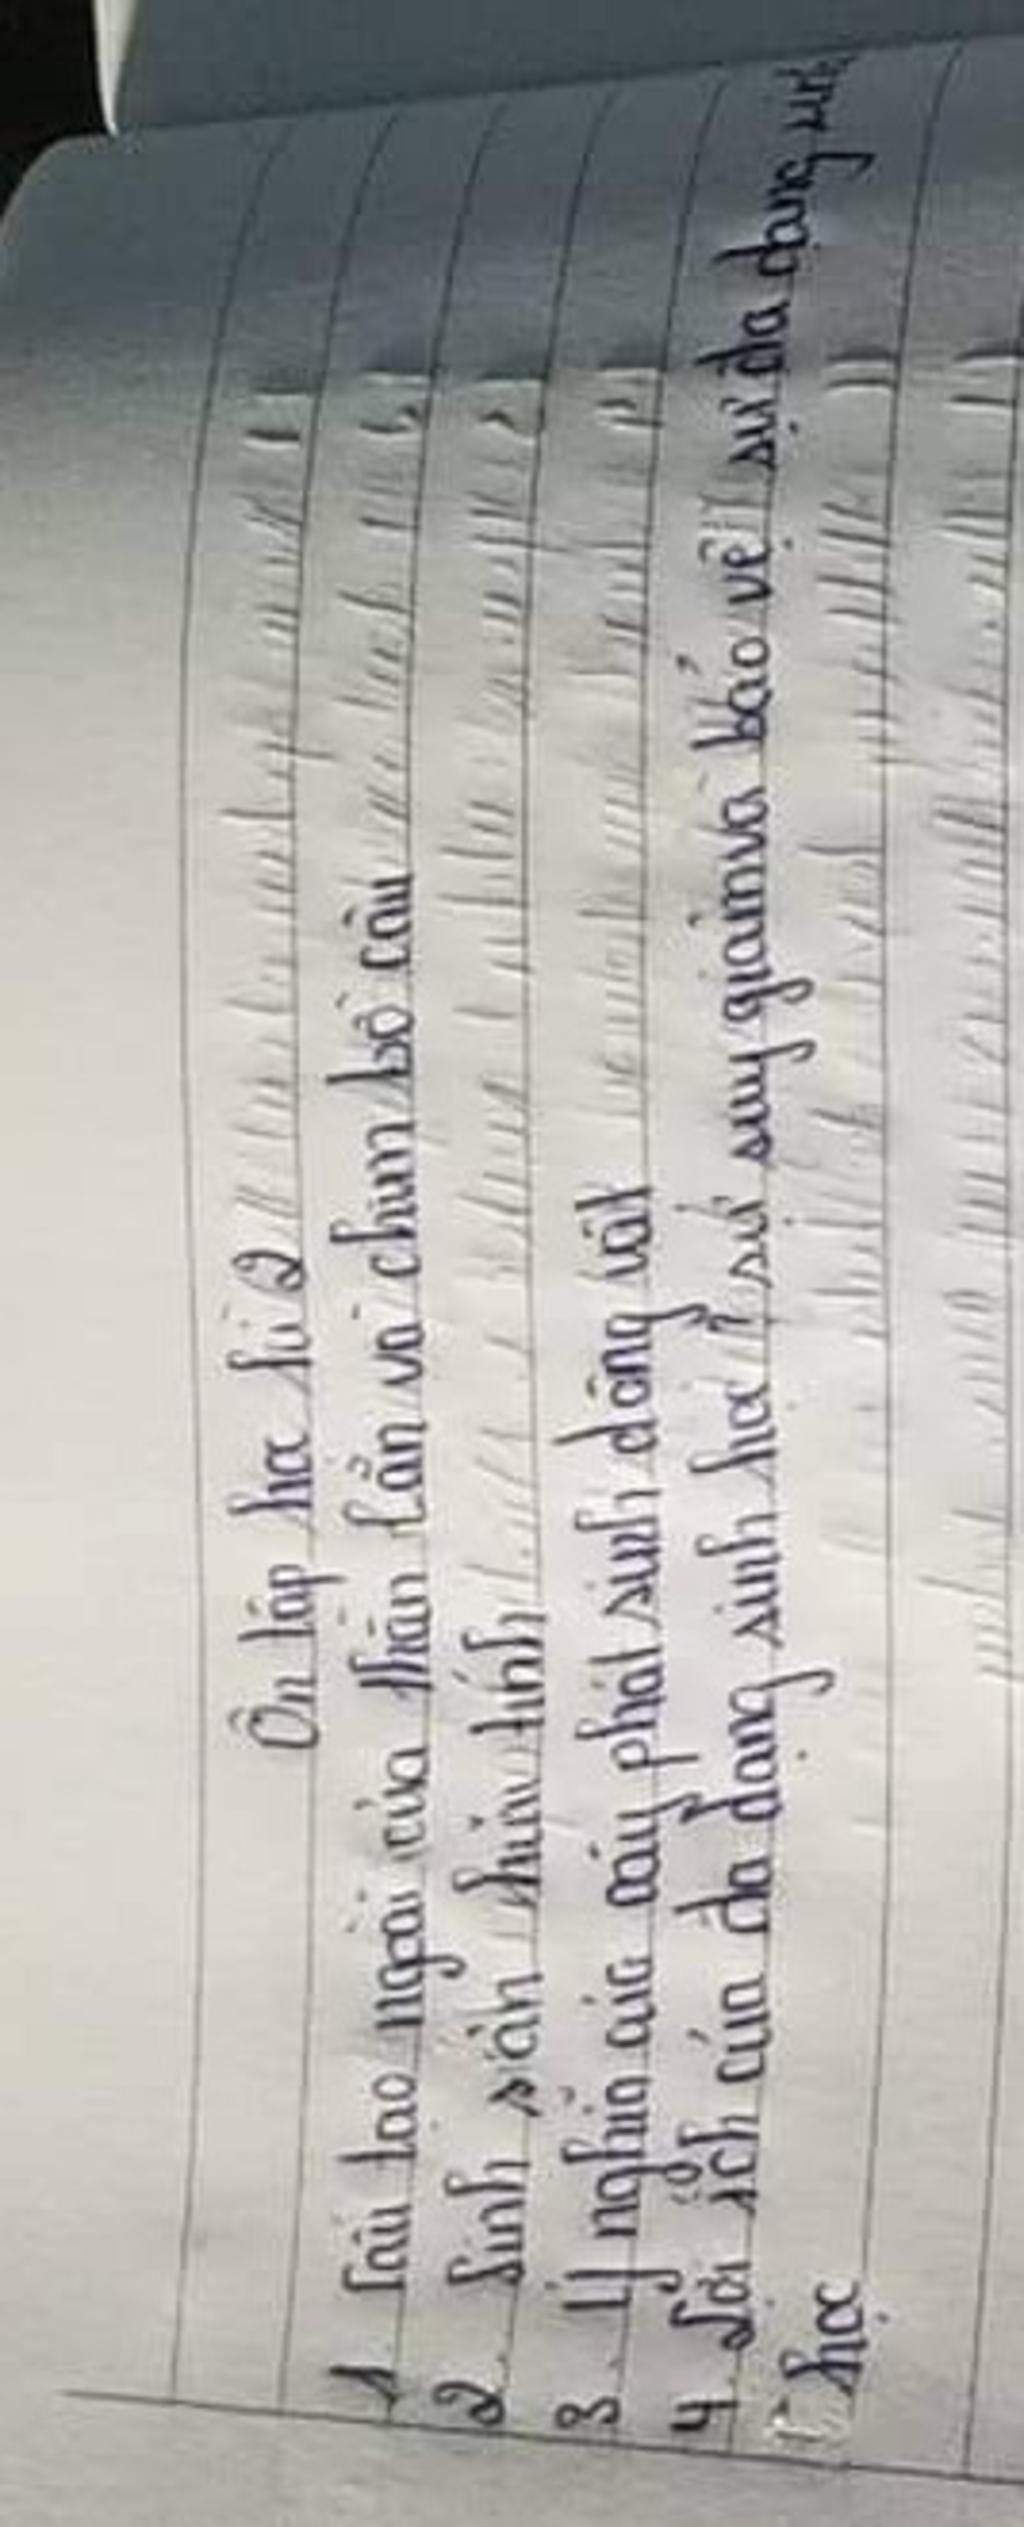 Ôn tập học kì 2
1 Cấu tạo ngoài của thằn lằn và chim bồ câu
2. Sinh sản hữu tính
3. Ý nghĩa của cây phát sinh động vật
4 Lợi ích của đa dạng sinh học? sự suy giảm và bảo vệ sự đa dạng sinh
học